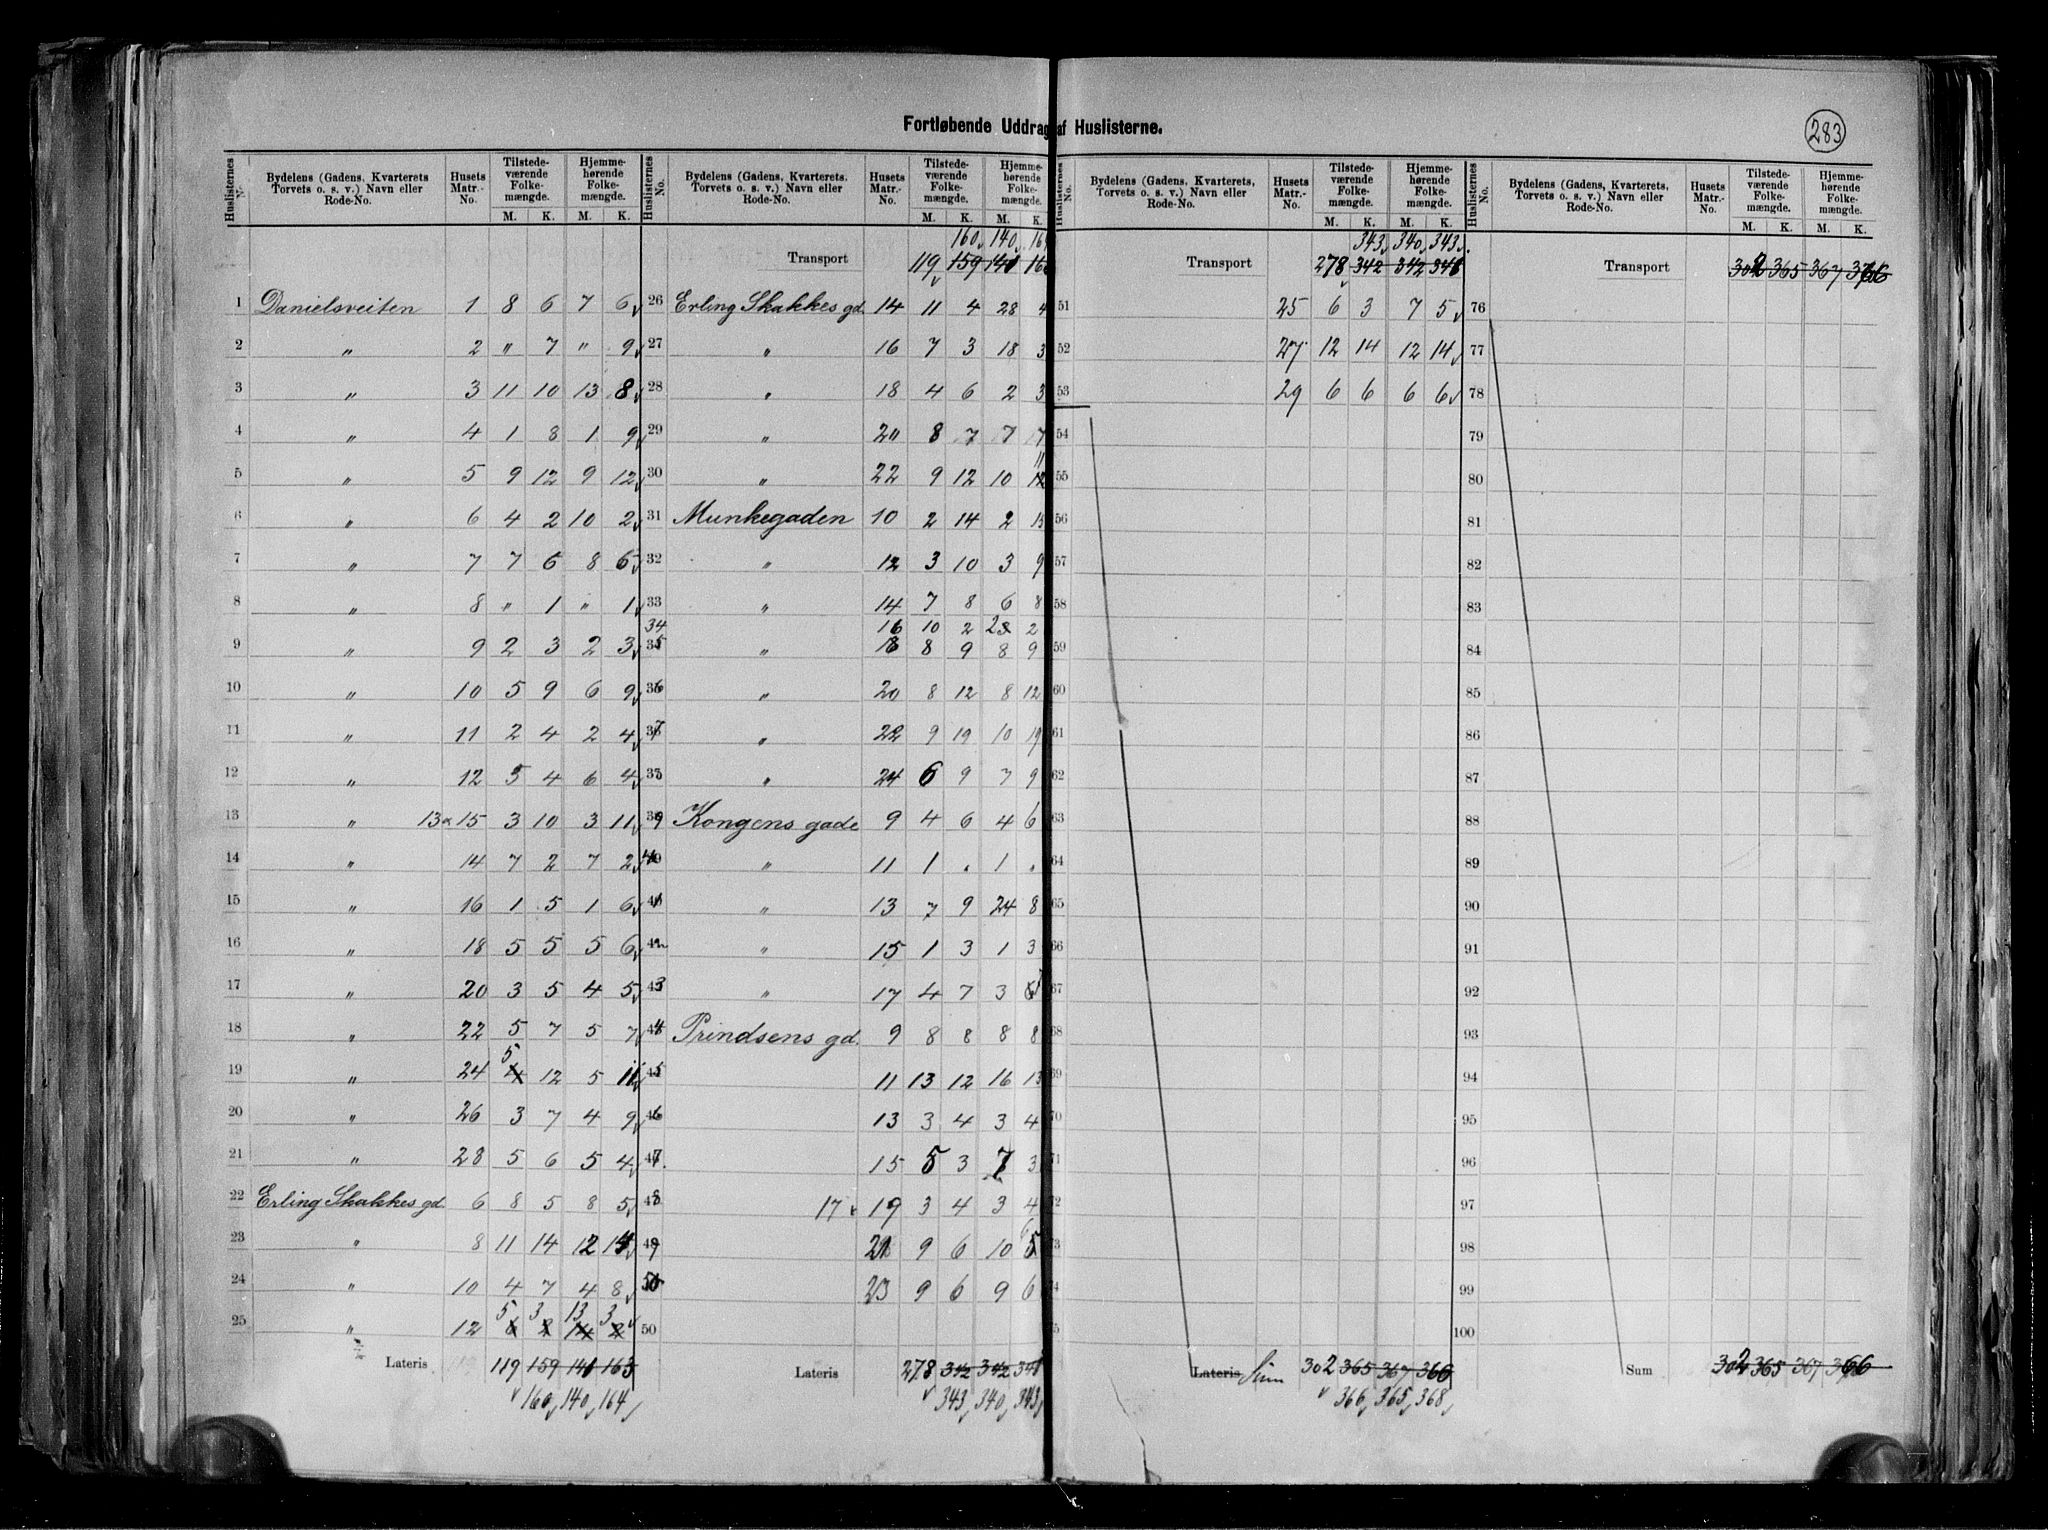 283
Fortløbende Uddrag af Huslisterne.
Huslisternes No. | Bydelens (Gadens, Kvarterets Torvets o. s. v.) Navn eller Rode-No. | Husets Matr.-No. | Tilstedeværende Folkemængde. M. K. | Hjemmehørende Folkemængde. M. K.
1 Danielsveiten 1 8 6 7 6
2 " 2 " 7 " 9
3 " 3 11 10 13 8
4 " 4 1 8 1 9
5 " 5 9 12 9 12
6 " 6 4 2 10 2
7 " 7 7 6 8 6
8 " 8 " 1 " 1
9 " 9 2 3 2 3
10 " 10 5 9 6 9
11 " 11 2 4 2 4
12 " 12 5 4 6 4
13 " 13 15 3 10 3 11
14 " 14 7 2 7 2
15 " 16 1 5 1 6
16 " 18 5 5 5 6
17 " 20 3 5 4 5
18 " 22 5 7 5 7
5
19 " 24 4 12 5 11
20 " 26 3 7 4 9
21 " 28 5 6 5 4
22 Erling Skakkes gd. 6 8 5 8 5
23 " 8 11 14 12 14
24 " 10 4 7 4 8
5 3 13 3
25 " 12
Lateris 119 159 141 163
160 140 164
Huslisternes No. | Bydelens (Gadens, Kvarterets. Torvets o. s. v.) Navn eller Rode-No. | Husets Matr.-No. | Tilstedeværende Folkemængde. M. K. | Hjemmehørende Folkemængde. M. K.
160 140
Transport 119 159 141
26 Erling Skakkes gd. 14 11 4 28 4
27 " 16 7 3 18 3
28 " 18 4 6 2 3
29 " 20 8 7 7 7
11
30 " 22 9 12 10 12
31 Munkegaden 10 2 14 2 15
32 " 12 3 10 3 9
33 " 14 7 8 6 8
34 16 10 2 23 2
35 " 18 8 9 8 9
36 " 20 8 12 8 12
37 " 22 9 19 10 19
" 24 6 9 7 9
39 Kongens gade 9 4 6 4 6
40 " 11 1 . 1 .
41 " 13 7 9 24 8
42 " 15 1 3 1 3
43 " 17 4 7 3
44 Prindsens gd. 9 8 8 8 8
45 11 13 12 16 13
46 13 3 4 3 4
47 15 5 3 7 3
48 17 19 3 4 3 4
6
49 21 9 6 10 5
50 23 9 6 9 6
50
Lateris 278 342 342
343 340 343
Huslisternes No. | Bydelens (Gadens, Kvarterets, Torvets o. s. v.) Navn eller Rode-No. | Husets Matr.-No. | Tilstedeværende Folkemængde. M. K. | Hjemmehørende Folkemængde. M. K.
343 340 343
Transport 278 342 342
51 25 6 3 7 5
52 27 12 14 12 14
53 29 6 6 6 6
54
55
56
57
58
59
60
61
62
63
64
65
66
67
68
69
70
71
72
73
74
5
Lateris Sum 302 365 367 366
366 365 368
Huslisternes No. | Bydelens (Gadens, Kvarterets, Torvets o. s. v.) Navn eller Rode-No. | Husets Matr.-No. | Tilstedeværende Folkemængde. M. K. | Hjemmehørende Folkemængde. M. K.
Transport 302 365 367 366
76
77
78
79
80
81
82
83
84
85
86
87
88
89
90
91
92
93
94
95
96
97
98
99
100
Sum 302 365 367 366